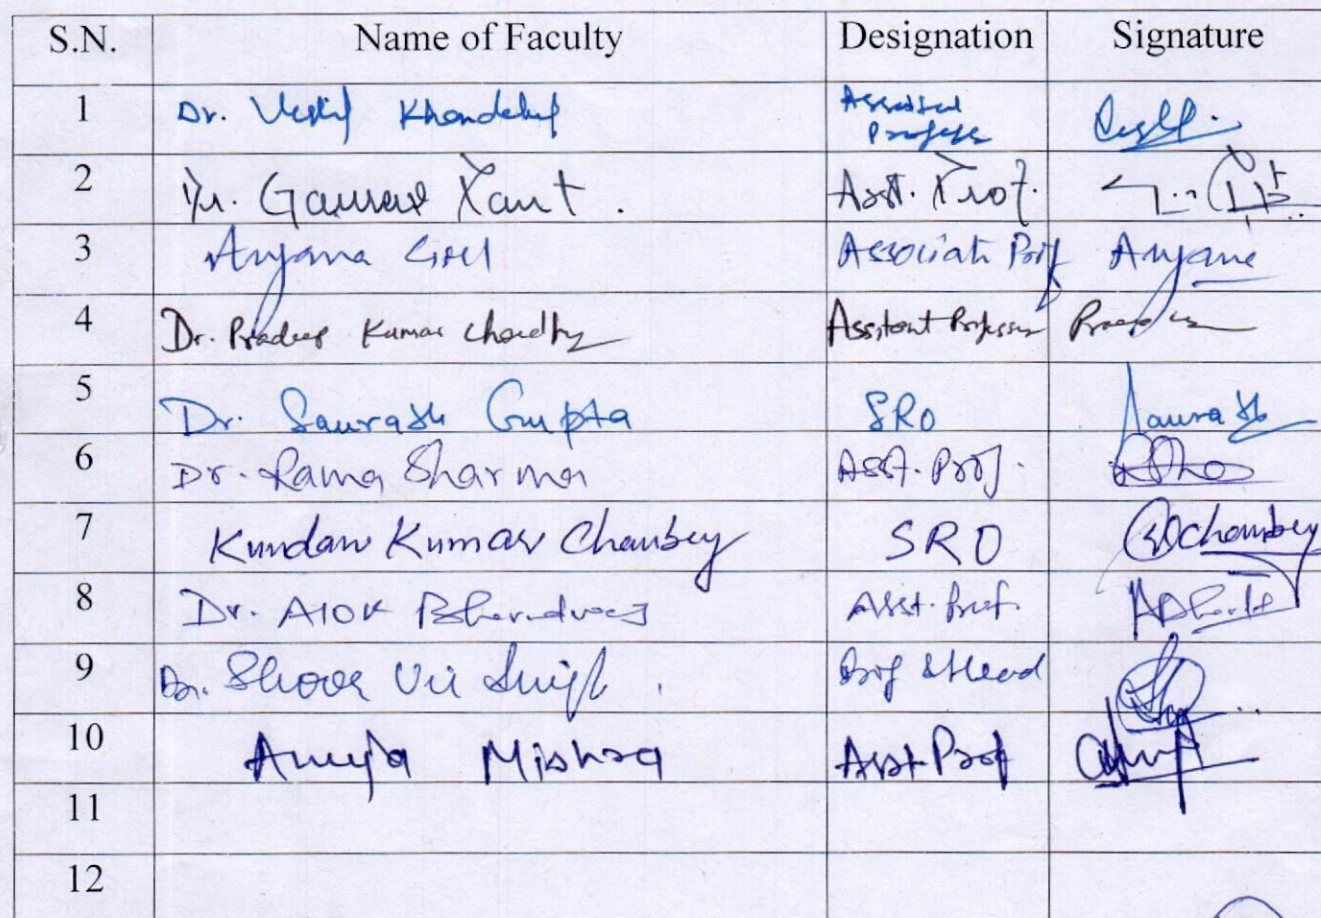 S.N. Name of Faculty Designation Signature
1 Dr. Khandelwal Assistant Professor
2 Dr. Gaurav Pant. Asst. Prof.
3 Anjana Goel Associate Prof Anjana
4 Dr. Pradeep Kumar Choudhry Assistant Professor
5 Dr. Saurabh Gupta SRO Saurabh
6 Dr. Rama Sharma Asst. Prof.
7 Kundan Kumar Chaubey SRO Chaubey
8 Dr. Alok Bharadwaj Asst. Prof.
9 Dr. Shoor Vir Singh. Prof & Head
10 Anuja Mishra Asst Prof
11
12